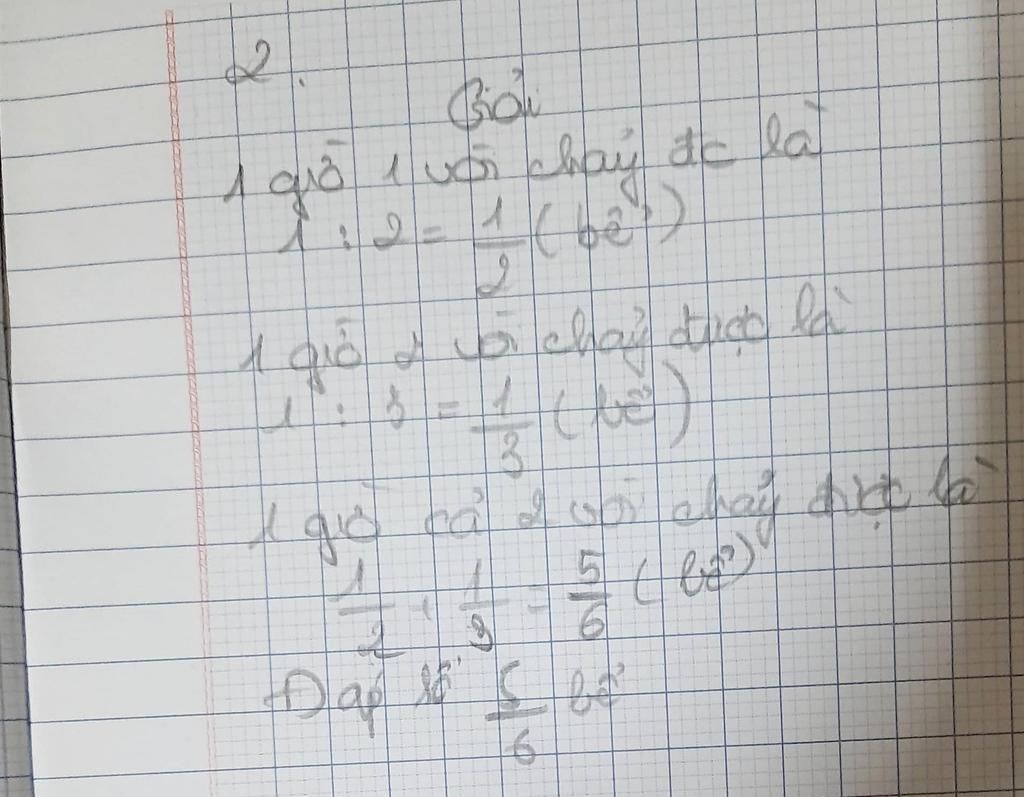 2.
Giải
1 giờ 1 vòi chảy đc là
1 : 2 = 1/2 (bể)
1 giờ 2 vòi chảy được là
1 : 3 = 1/3 (bể)
1 giờ cả 2 vòi chảy được là
1/2 + 1/3 = 5/6 (bể)
Đáp số 5/6 bể